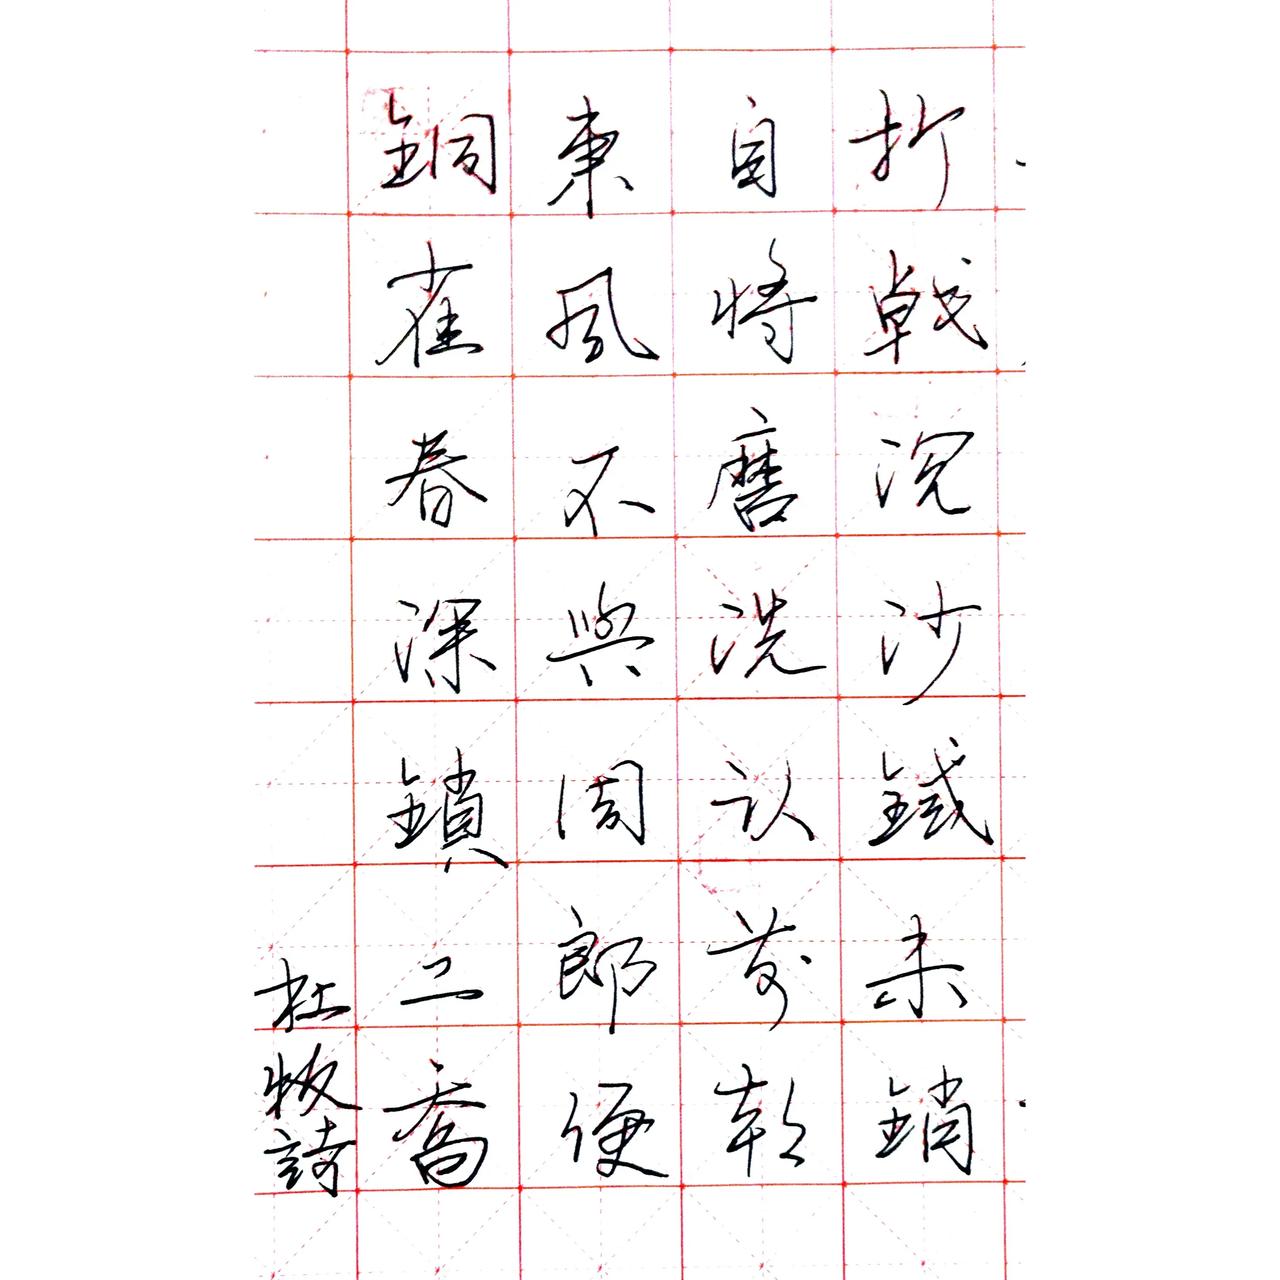 折戟沉沙鐵未銷
自將磨洗认前朝
東風不與周郎便
銅雀春深鎖二喬
杜牧詩